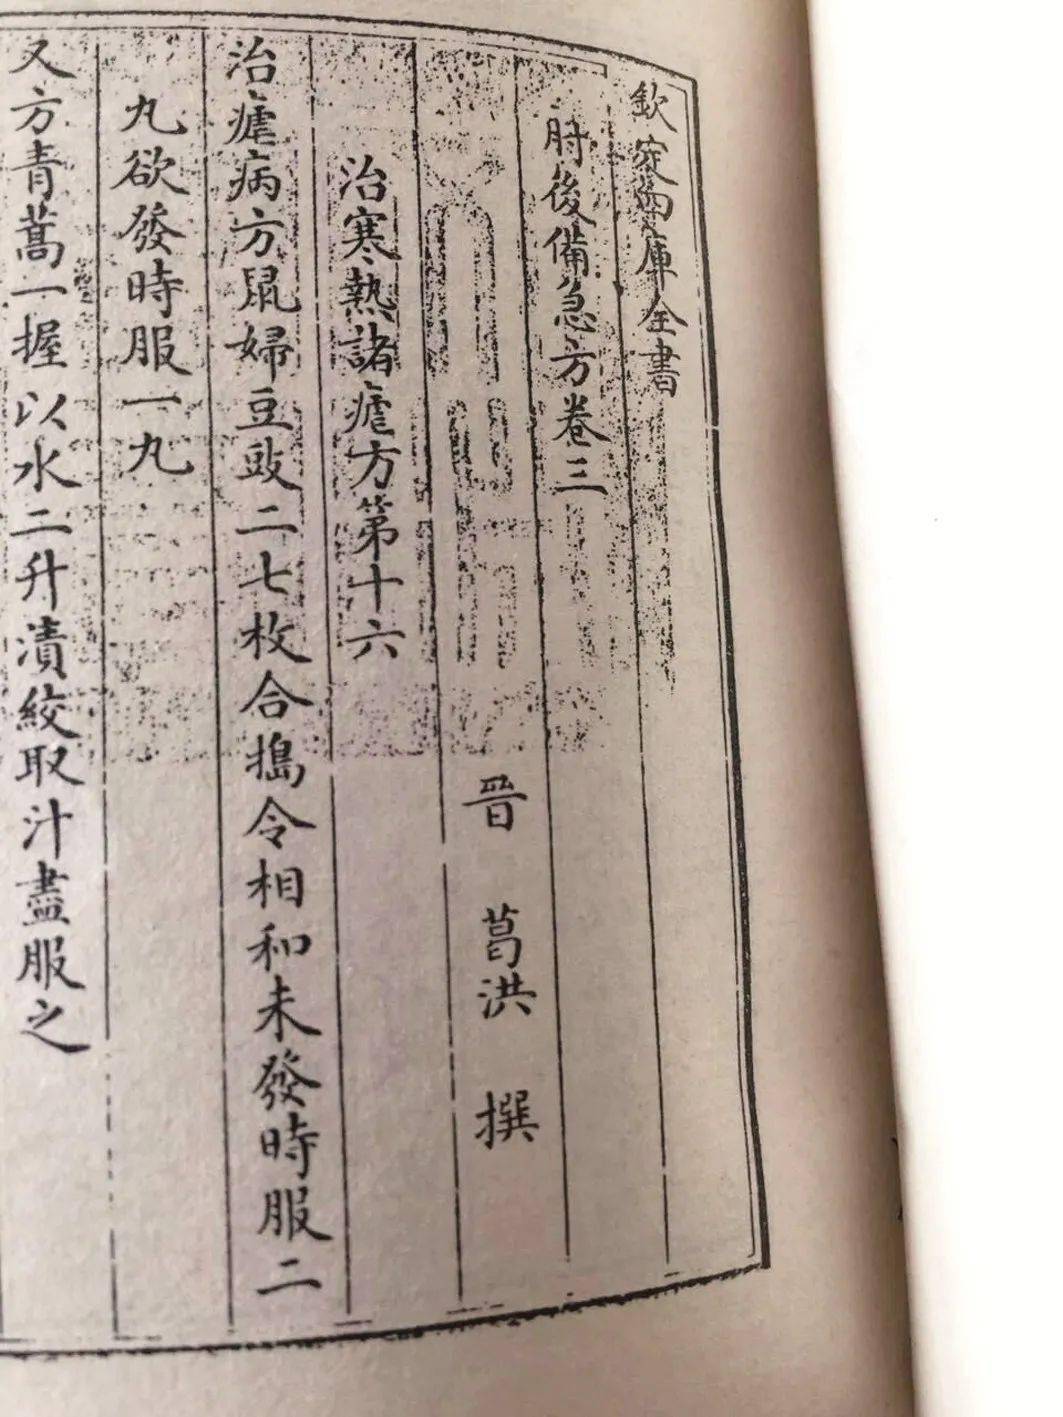 欽定四庫全書
肘後備急方卷三
晉 葛洪 撰
治寒熱諸瘧方第十六
治瘧病方鼠婦豆豉二七枚合搗令相和未發時服二
丸欲發時服一丸
又方青蒿一握以水二升漬絞取汁盡服之